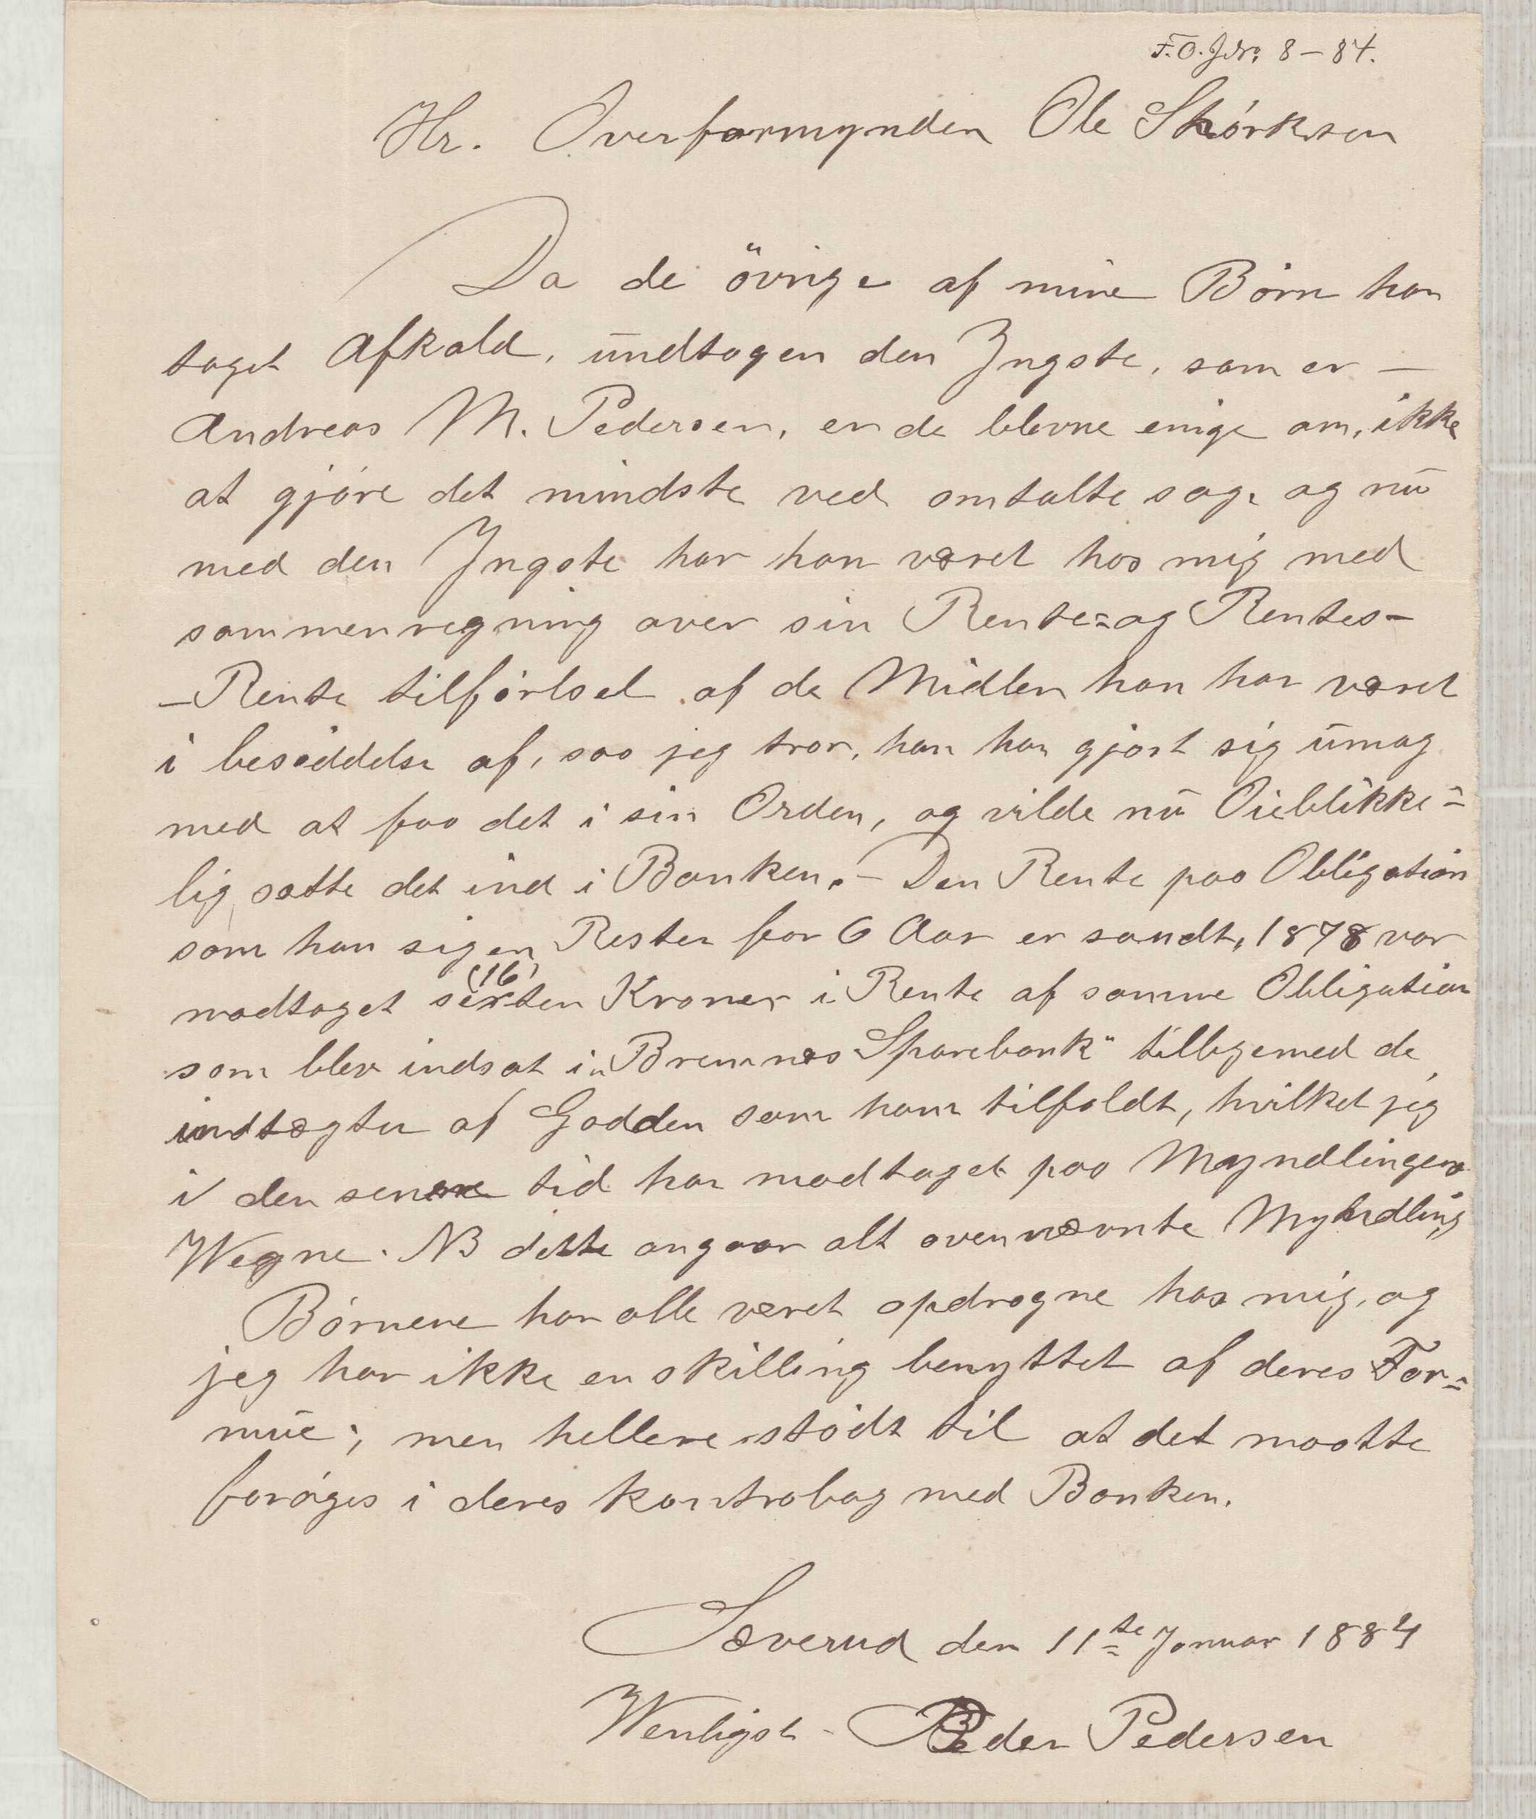 F. O. Jdr. 8 – 84.
Hr. Overformynden Ole Störksen
Da de övrige af mine Börn har
taget Afkald, undtagen den Yngste, som er –
Andreas M. Pedersen, er de blevne enige om, ikke
at gjöre det mindste ved omtalte sag, og nu
med den Yngste har han været hos mig med
sammenregning over sin Rente= og Rentes-
– Rente tilförlsel af de Midler han har været
i besiddelse af, saa jeg tror, han har gjort sig umag
med at faa det i sin Orden, og vilde nu Oieblikke=
lig sætte det ind i Banken. – Den Rente paa Obligation
som han siger Rester for 6 Aar er sandt, 1878 var
modtaget sexten (16) Kroner i Rente af samme Obligation
som blev indsat i "Bremnes Sparebank" tilligemed de
indtægter af Gadden som ham tilfaldt, hvilket jeg
i den senere tid har modtaget paa Myndlingens
Wegne. NB dette angaar alt ovennævnte Myndling
Börnene har alle været opdragne hos mig, og
jeg har ikke en skilling benyttet af deres For=
mue; men hellere stödt til at det maatte
foröges i deres kontrabog med Banken.
Sæverud den 11te Januar 1884
Wenligst – Peder Pedersen